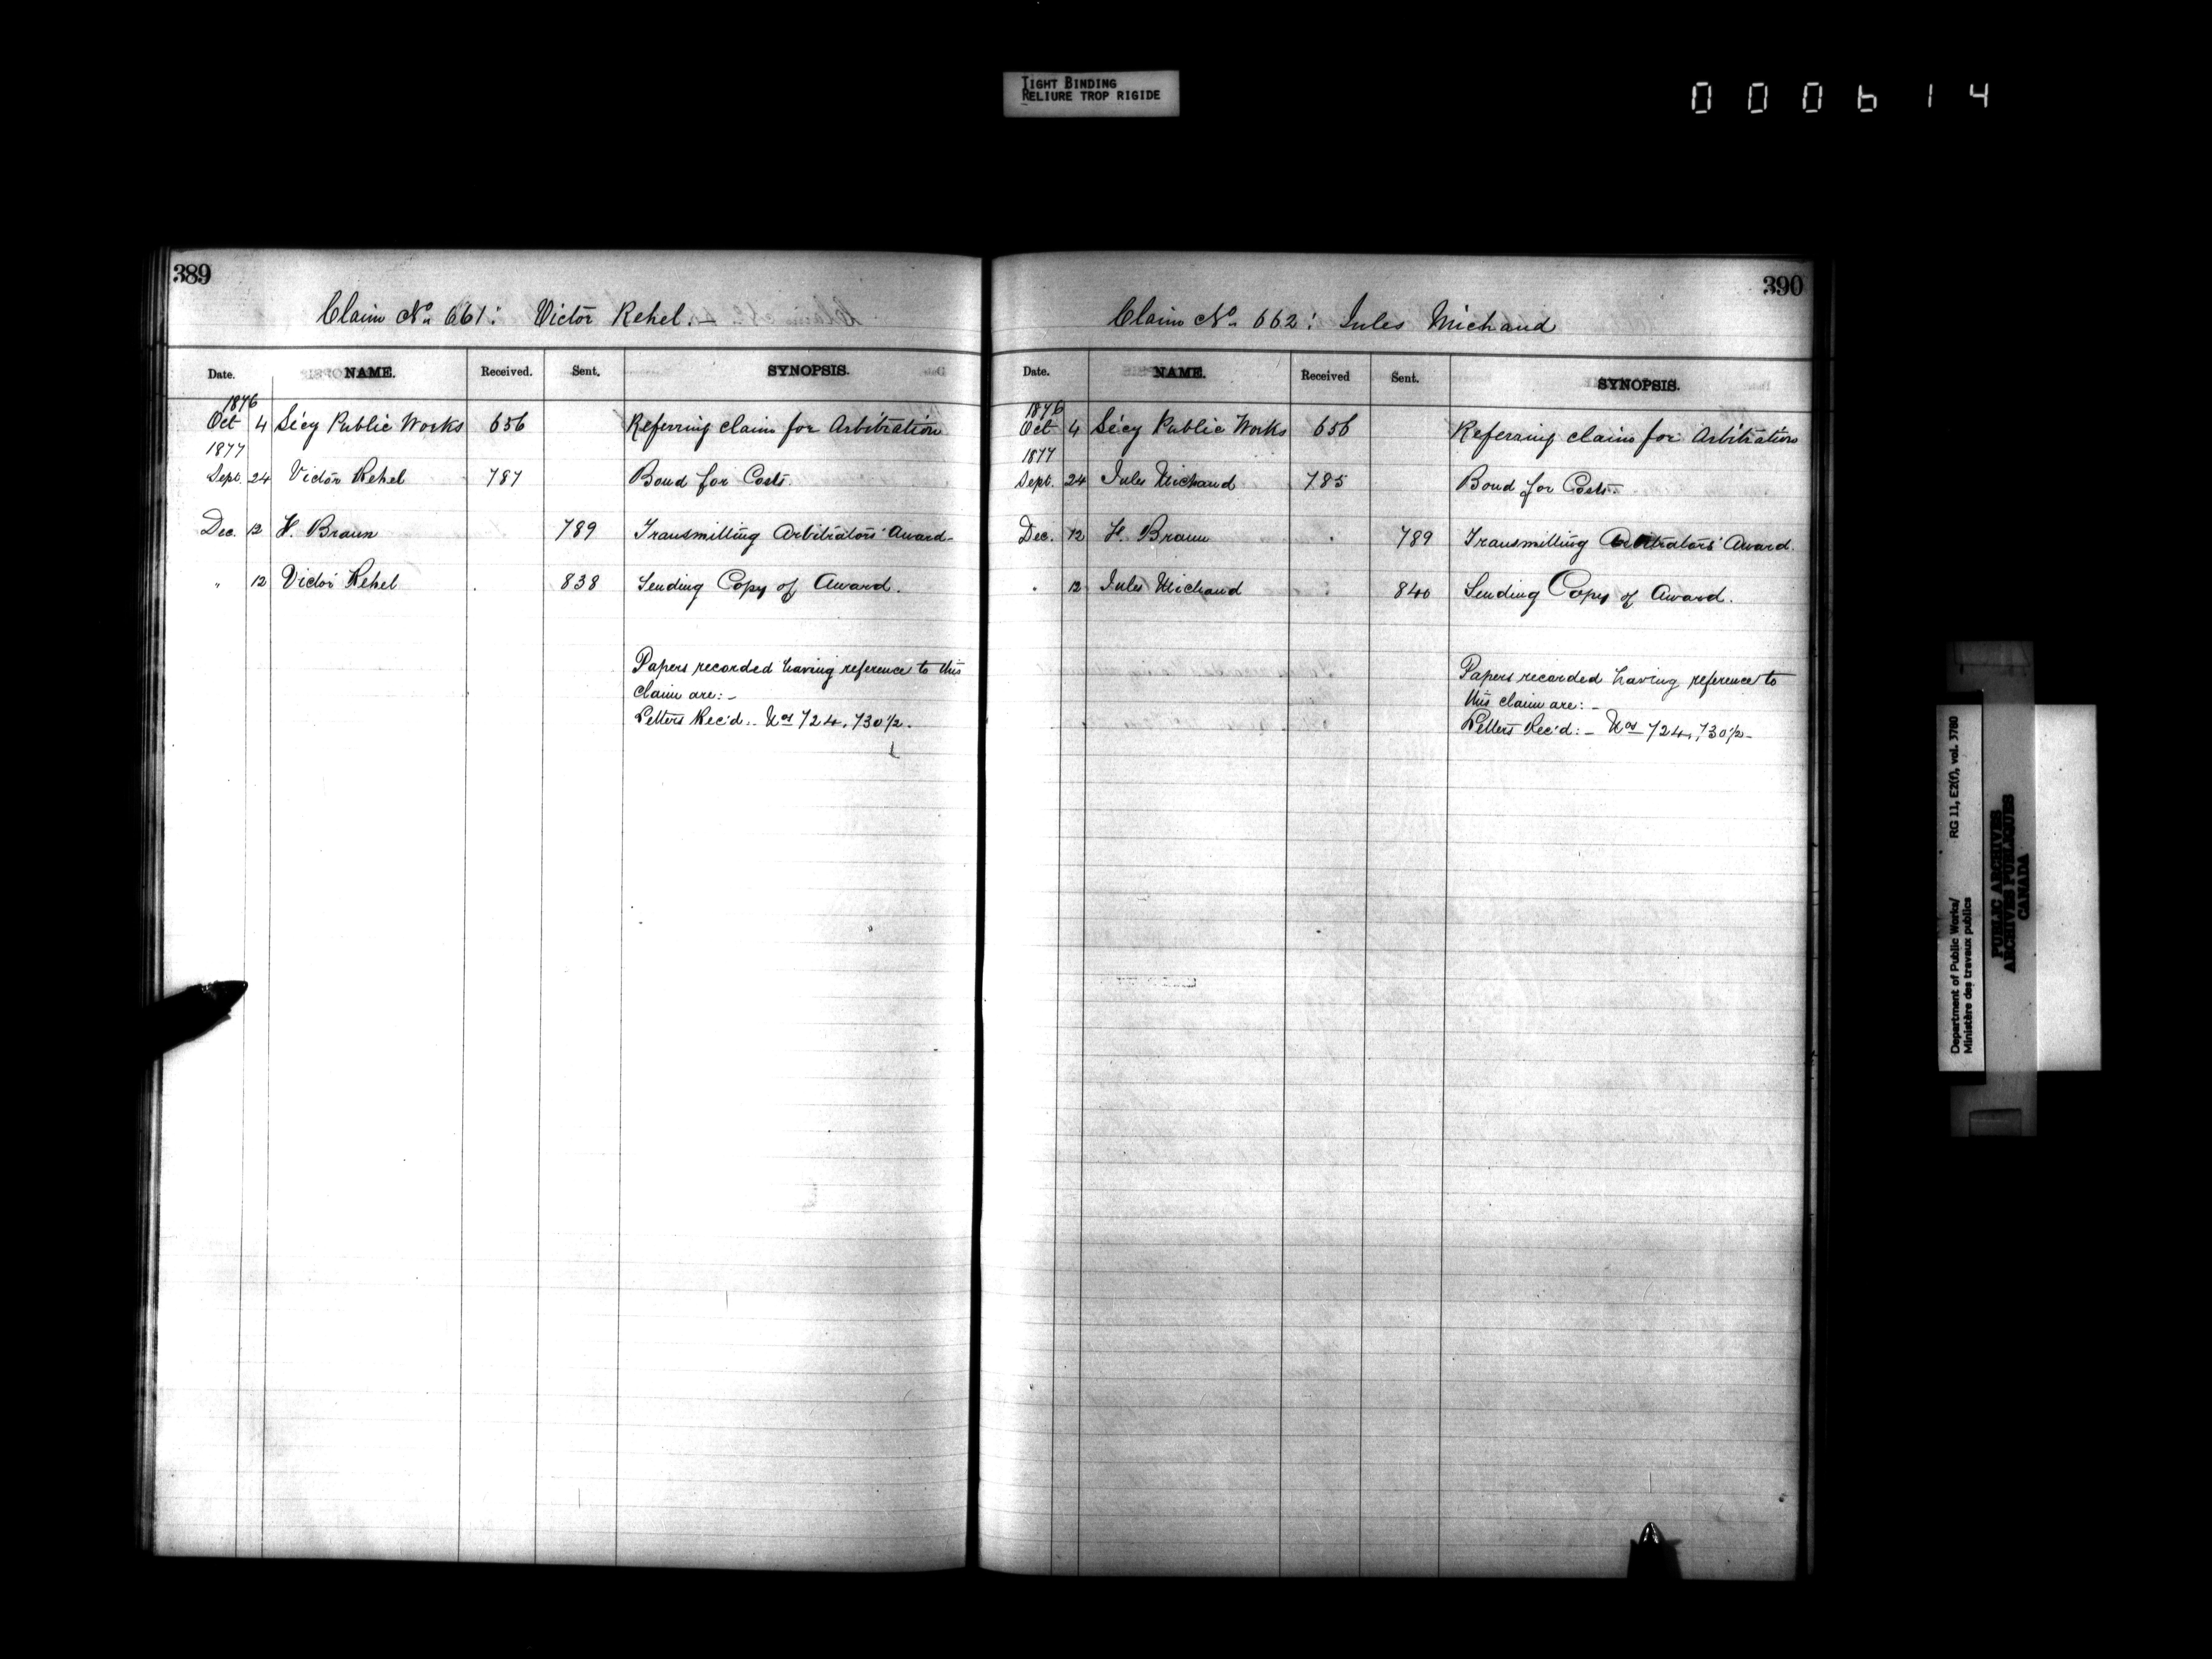 TIGHT BINDING
RELIURE TROP RIGIDE
000614
389
Claim No. 661: Victor Rehel. –
Date. NAME. Received. Sent. SYNOPSIS.
1876
Oct 4 Sécy Public Works 656 Referring claim for Arbitration
1877
Sept. 24 Victor Rehel 787 Bond for Costs.
Dec. 12 F. Braun 789 Transmitting Arbitrators' Award-
" 12 Victor Rehel 838 Sending Copy of Award.
Papers recorded having reference to this
claim are: –
Letters Rec'd: – Nos 724, 730½ –
390
Claim No. 662: Jules Michaud
Date. NAME. Received Sent. SYNOPSIS.
1876
Oct 4 Sécy Public Works 656 Referring claim for Arbitration
1877
Sept. 24 Jules Michaud 785 Bond for Costs.
Dec. 12 F. Braun 789 Transmitting Arbitrators' Award.
" 12 Jules Michaud 840 Sending Copy of Award.
Papers recorded having reference to
this claim are: –
Letters Rec'd: – Nos 724, 730½ –
Department of Public Works/ RG 11, E2(f), vol. 3780
Ministère des travaux publics
PUBLIC ARCHIVES
ARCHIVES PUBLIQUES
CANADA